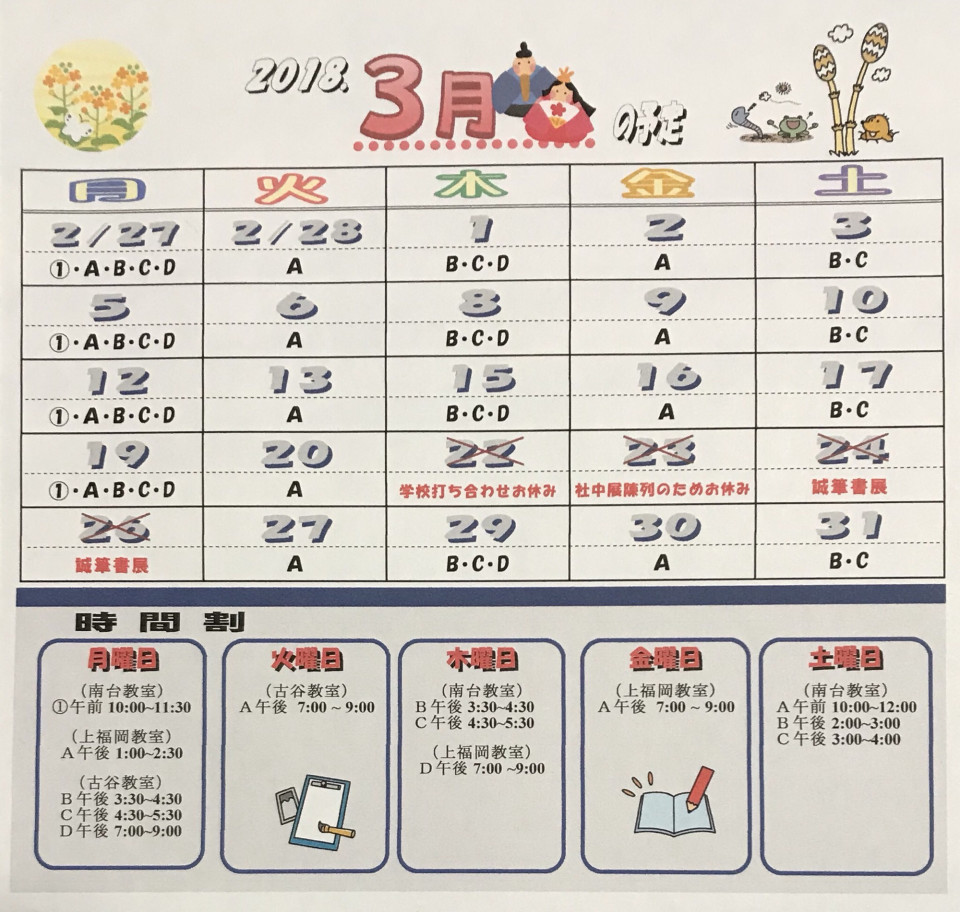 2018.3月の予定
月 火 木 金 土
2/27 2/28 1 2 3
①・A・B・C・D A B・C・D A B・C
5 6 8 9 10
①・A・B・C・D A B・C・D A B・C
12 13 15 16 17
①・A・B・C・D A B・C・D A B・C
19 20 22 23 24
①・A・B・C・D A 学校打ち合わせお休み 社中展陳列のためお休み 誠筆書展
26 27 29 30 31
誠筆書展 A B・C・D A B・C
時間割
月曜日
（南台教室）
①午前 10:00~11:30
（上福岡教室）
A午後 1:00~2:30
（古谷教室）
B午後 3:30~4:30
C午後 4:30~5:30
D午後 7:00~9:00
火曜日
（古谷教室）
A午後 7:00 ~ 9:00
木曜日
（南台教室）
B午後 3:30~4:30
C午後 4:30~5:30
（上福岡教室）
D午後 7:00 ~9:00
金曜日
（上福岡教室）
A午後 7:00 ~ 9:00
土曜日
（南台教室）
A午前 10:00~12:00
B午後 2:00~3:00
C午後 3:00~4:00